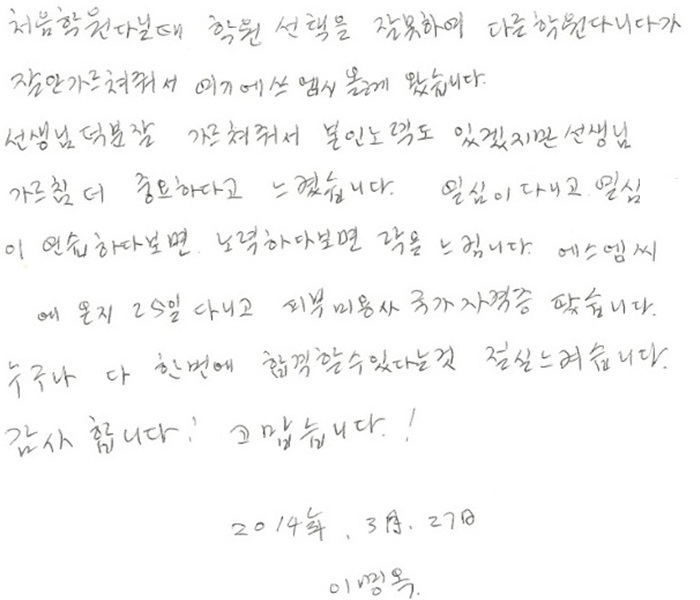 처음학원다닐때 학원 선택을 잘못하여 다른학원다니다가
잘안가르쳐줘서 여기에쓰 엠시 올르게 왔습니다.
선생님덕분잘 가르쳐줘서 본인노력도 있겠지만 선생님
가르침 더 중요하다고 느꼈습니다. 열심이 다니고. 열심
이 연습하다보면. 노력하다보면 락을 느낌니다. 에스엠씨
에 온지 25일 다니고 피부미용사 국가자격증 땄습니다.
누구나 다 한번에 합격할수있다는것 절실느껴습니다.
감사 합니다! 고맙습니다.!
2014年. 3月. 27日
이명옥.